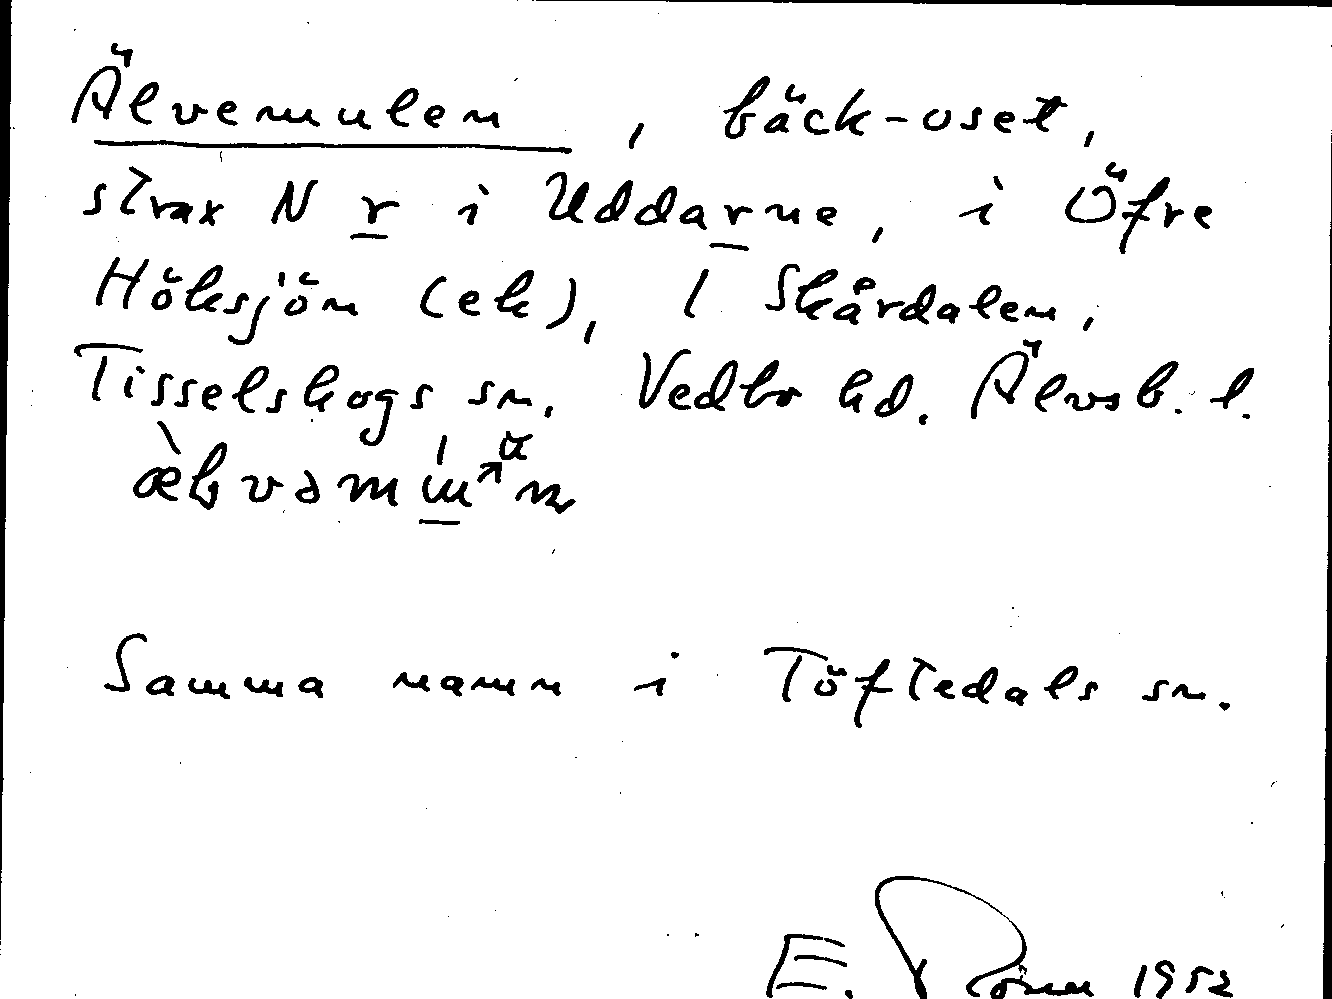 Älvemulen, bäck-oset,
strax N r i Uddarne, i Öfre
Höksjön (ek), l Skårdalen,
Tisselskogs sn, Vedbo hd. Älvsb. l.
Samma namn i Töftedals sn.
E. 1952